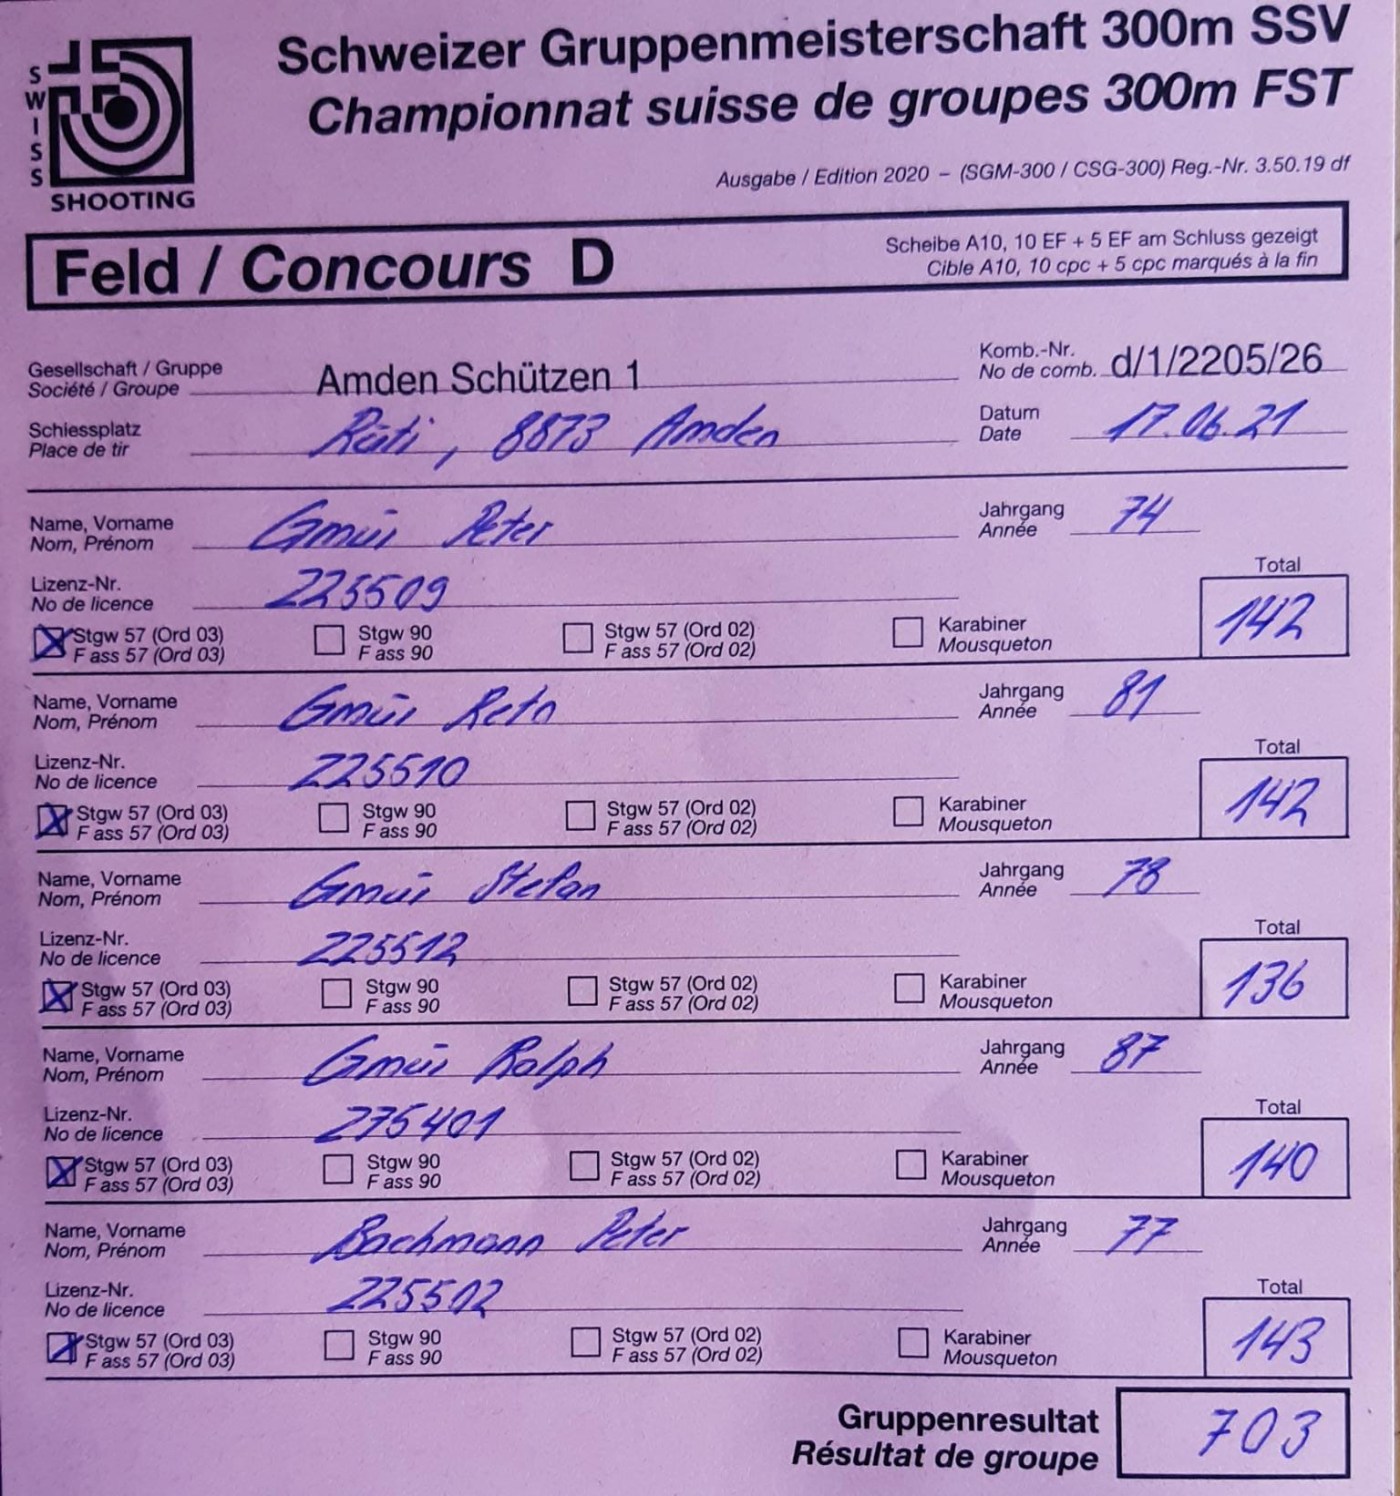 SWISS
SHOOTING
Schweizer Gruppenmeisterschaft 300m SSV
Championnat suisse de groupes 300m FST
Ausgabe / Edition 2020 – (SGM-300 / CSG-300) Reg.-Nr. 3.50.19 df
Feld / Concours D
Scheibe A10, 10 EF + 5 EF am Schluss gezeigt
Cible A10, 10 cpc + 5 cpc marqués à la fin
Gesellschaft / Gruppe
Société / Groupe
Amden Schützen 1
Komb.-Nr.
No de comb.
d/1/2205/26
Schiessplatz
Place de tir
Rüti, 8873 Amden
Datum
Date
17.06.21
Name, Vorname
Nom, Prénom
Gmür Peter
Jahrgang
Année
74
Lizenz-Nr.
No de licence
225509
Total
142
Stgw 57 (Ord 03)
F ass 57 (Ord 03)
Stgw 90
F ass 90
Stgw 57 (Ord 02)
F ass 57 (Ord 02)
Karabiner
Mousqueton
Name, Vorname
Nom, Prénom
Gmür Reto
Jahrgang
Année
81
Lizenz-Nr.
No de licence
225510
Total
142
Stgw 57 (Ord 03)
F ass 57 (Ord 03)
Stgw 90
F ass 90
Stgw 57 (Ord 02)
F ass 57 (Ord 02)
Karabiner
Mousqueton
Name, Vorname
Nom, Prénom
Gmür Stefan
Jahrgang
Année
78
Lizenz-Nr.
No de licence
225512
Total
136
Stgw 57 (Ord 03)
F ass 57 (Ord 03)
Stgw 90
F ass 90
Stgw 57 (Ord 02)
F ass 57 (Ord 02)
Karabiner
Mousqueton
Name, Vorname
Nom, Prénom
Gmür Ralph
Jahrgang
Année
87
Lizenz-Nr.
No de licence
275401
Total
140
Stgw 57 (Ord 03)
F ass 57 (Ord 03)
Stgw 90
F ass 90
Stgw 57 (Ord 02)
F ass 57 (Ord 02)
Karabiner
Mousqueton
Name, Vorname
Nom, Prénom
Bachmann Peter
Jahrgang
Année
77
Lizenz-Nr.
No de licence
225502
Total
143
Stgw 57 (Ord 03)
F ass 57 (Ord 03)
Stgw 90
F ass 90
Stgw 57 (Ord 02)
F ass 57 (Ord 02)
Karabiner
Mousqueton
Gruppenresultat
Résultat de groupe
703